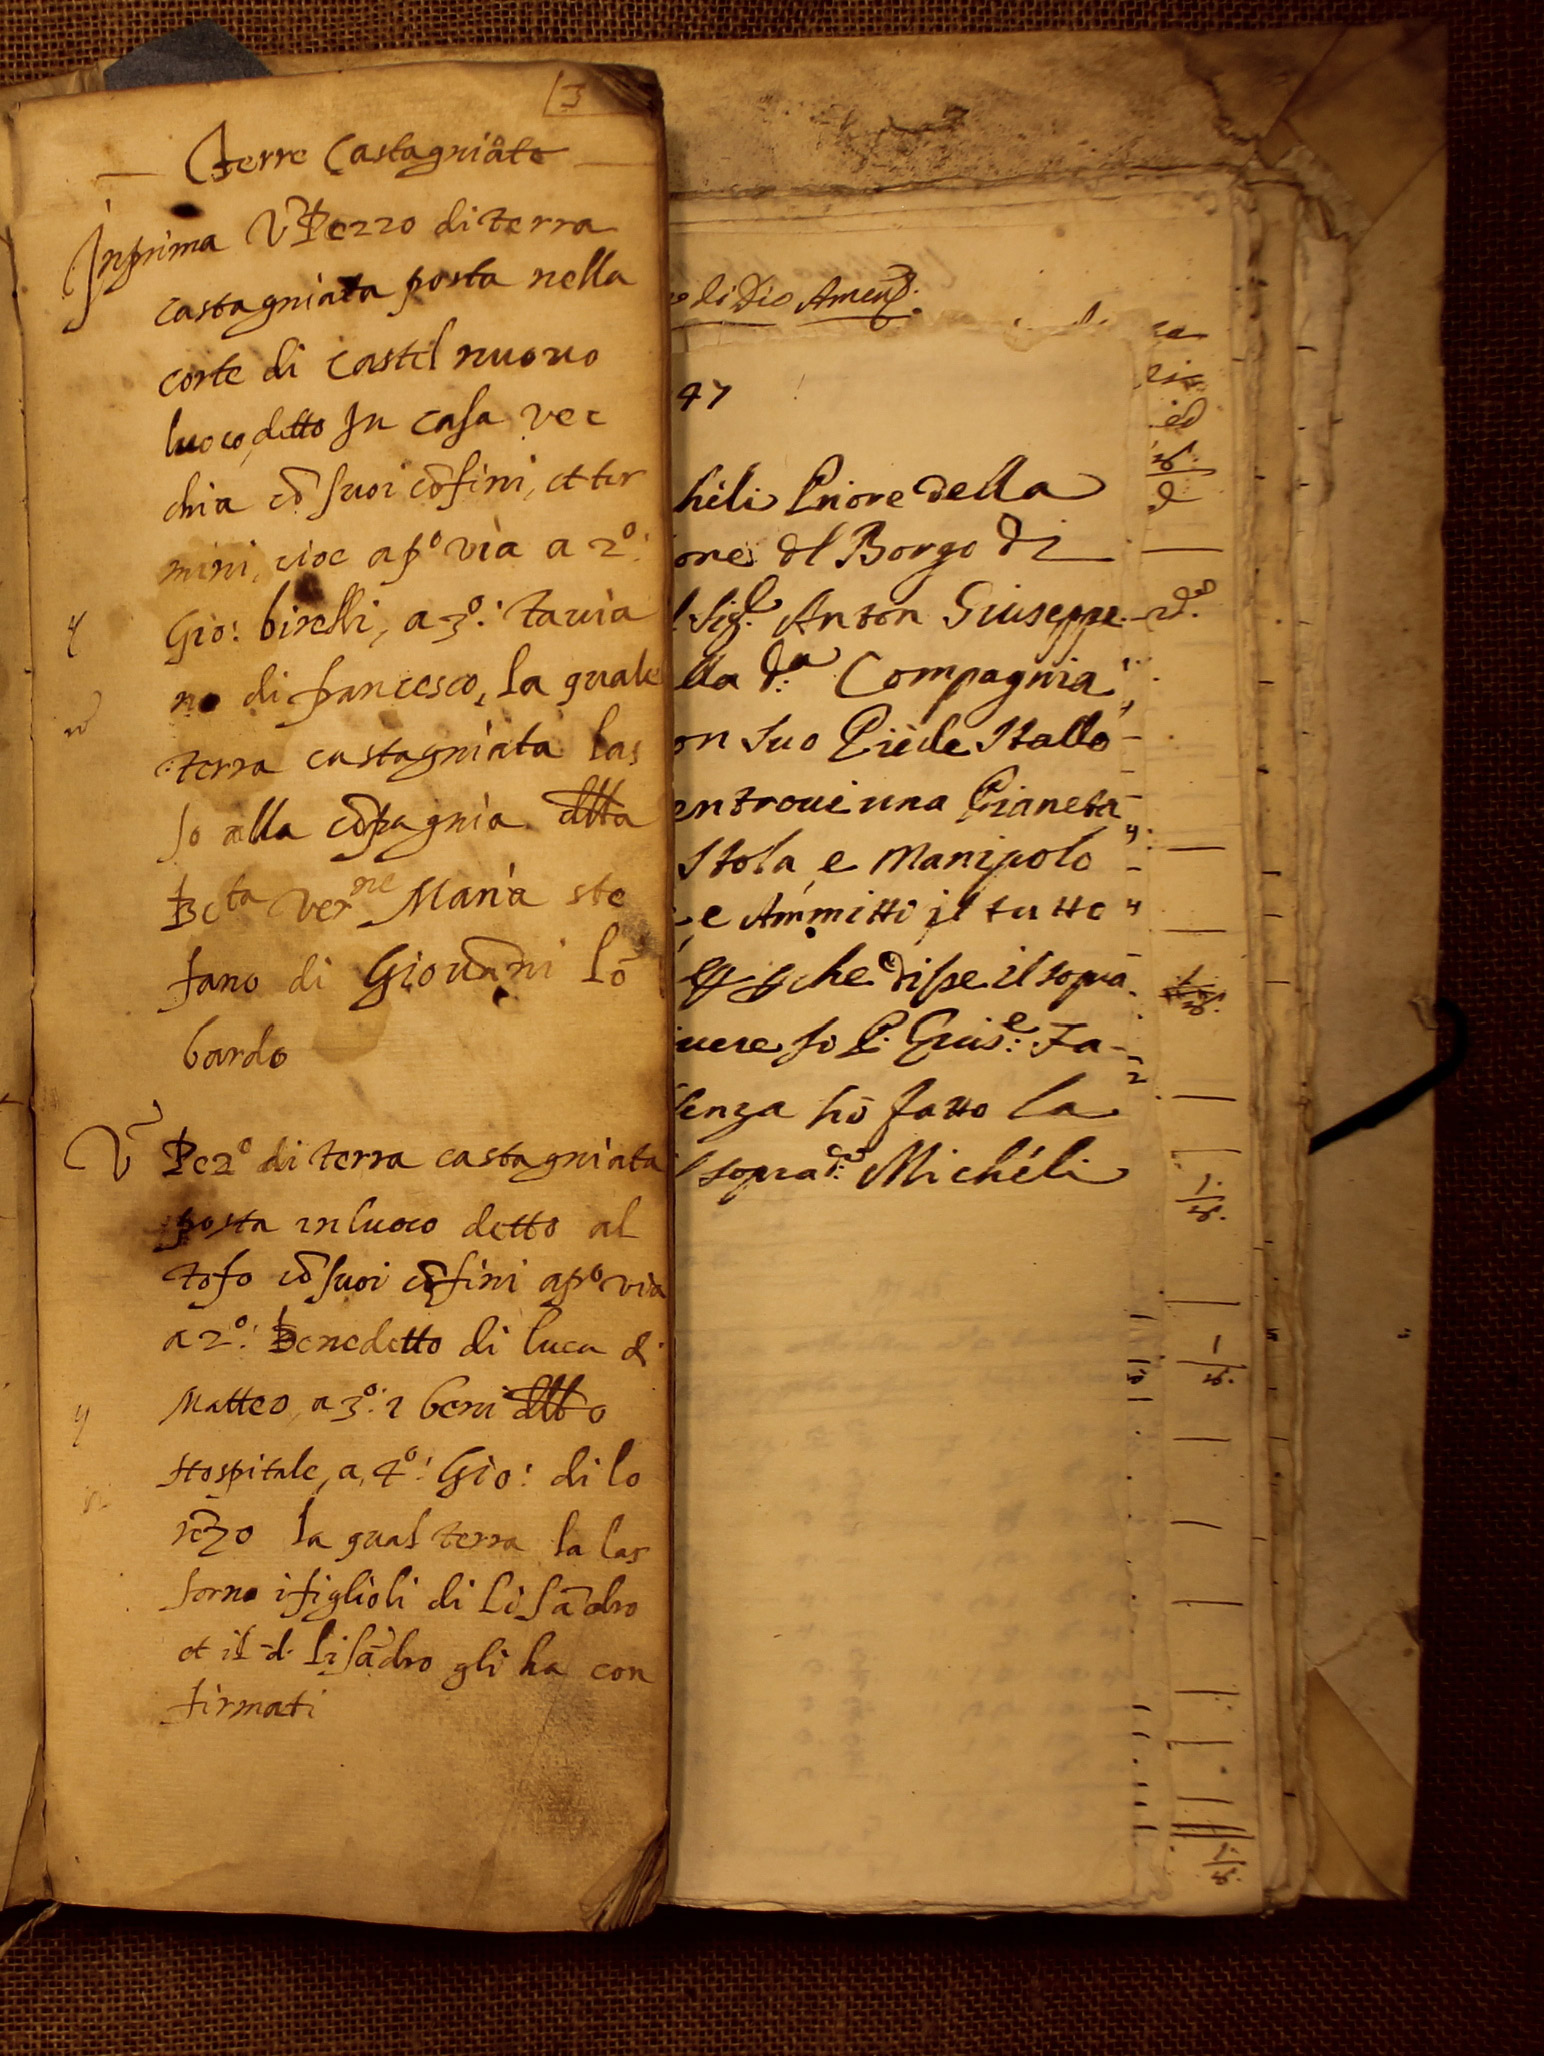 3
Terre Castagniate
Inprima Ũ Pezzo di terra
castagniata posta nella
corte di castel nuovo
luoco, detto In casa vec
chia cõ suoi cõfini, et ter
mini, cioe a pº via a 2º:
Gio: birelli, a 3º: tavia
no di francesco, la quale
terra castagniata las
so alla cõpagnia della
Beta verne Maria ste
fano di Giovãni lõ
bardo
Ũ Pezº di terra castagniata
posta in luoco detto al
tofo cõ suoi cõfini a pº via
a 2º: Benedetto di luca di
Matteo, a 3º: i beni dello
Hospitale, a 4º: Gio: di lo
rẽzo la qual terra la las
sorno i figlioli di Lisãdro
et il d. lisãdro gli ha con
firmati
di Dio Amen
47
heli Priore della
ore dl Borgo di
Sigr. Anton Giuseppe
lla d:a Compagnia
on suo Piede Stallo
entrovi una Pianeta
Stola, e Manipolo
e Ammitti il tutto
che disse il sopra
vere Io P. Giuse: Fa-
senza hò fatto la
soprad:o Michéli